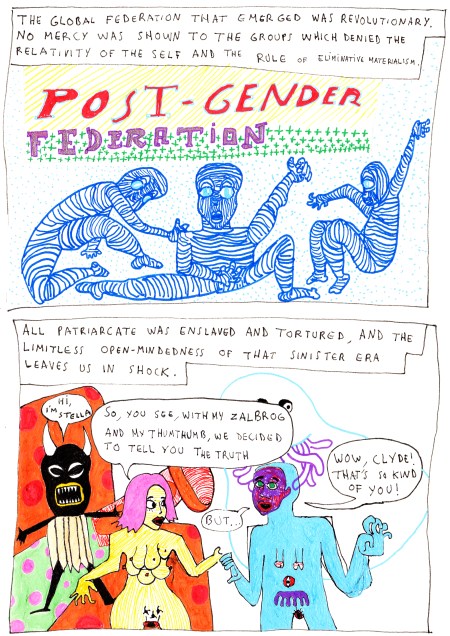 THE GLOBAL FEDERATION THAT EMERGED WAS REVOLUTIONARY.
NO MERCY WAS SHOWN TO THE GROUPS WHICH DENIED THE
RELATIVITY OF THE SELF AND THE RULE OF ELIMINATIVE MATERIALISM.
POST-GENDER
FEDERATION
ALL PATRIARCATE WAS ENSLAVED AND TORTURED, AND THE
LIMITLESS OPEN-MINDEDNESS OF THAT SINISTER ERA
LEAVES US IN SHOCK.
HI,
I'M STELLA
SO, YOU SEE, WITH MY ZALBROG
AND MY THUMTHUMB, WE DECIDED
TO TELL YOU THE TRUTH
BUT...
WOW, CLYDE!
THAT'S SO KIND
OF YOU!